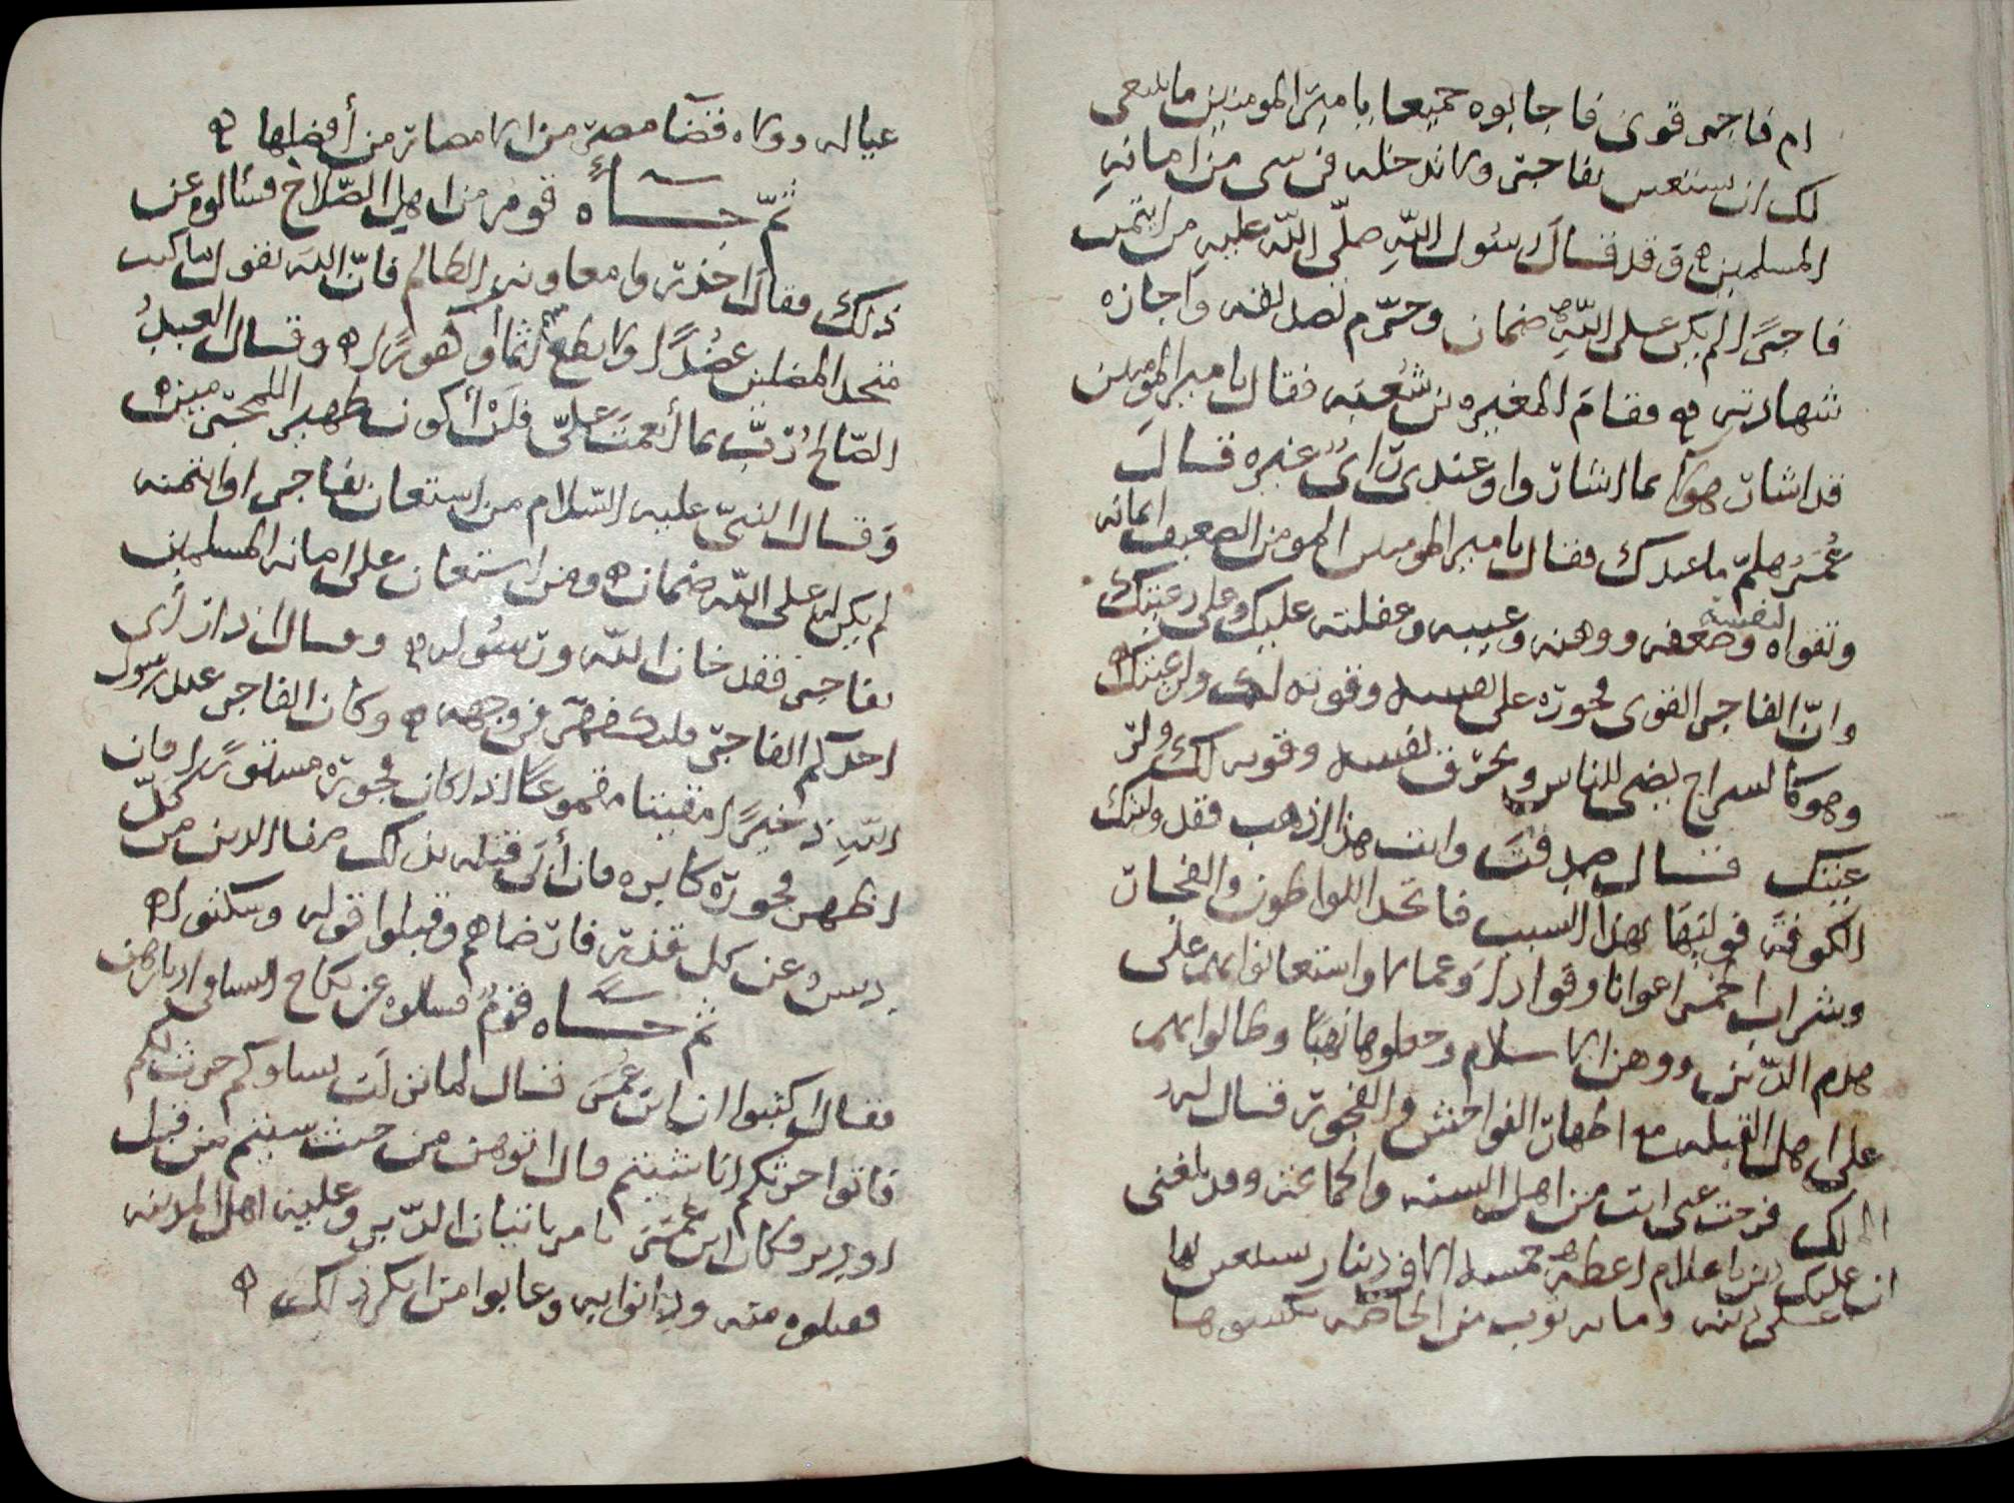 ام فاجر قوي فاجابوه جميعا يا مير المومنين ما ينبغي
لك ان تستعين بفاجر ولا تدخله في شي من امانه
المسلمين وقد قال رسول الله صلى الله عليه من ايتمن
فاجرًا لم يكن على الله ضمان وحرم تصديقه واجازه
شهادته فقام المغيره بن شعبه فقال يا مير المومنين
قد اشار هولا بما اشاروا وعندي راي غيره قال
عُمَرُ هلم ما عندك فقال يا مير المومنين المومن الضعيف ايمانه
وتقواه لنفسه وضعفه ووهنه وعيبه وغفلته عليك وعلى رعيتك
وان الفاجر القوي فجوره على نفسه وقوته لك ولرعيتك
وهو كالسراج يضي للناس ويحرق نفسه وقوته لك ولر
عيتك قال صدقت وانت هذا اذهب فقد وليتك
الكوفة فوليها بهذا السبب فاتخذ اللواطون والفجار
وشراب الخمر اعوانا وقوادا وعمالا واستعانوا بهم على
هدم الدين ووهن الاسلام وجعلوها نهبًا وطالوا بهم
على اهل القبله مع اظهار الفواحش والفجور قال له
لك فرحت عني انت من اهل السنه والجماعه وقد بلغني
ان عليك دين يا غلام اعطه خمسه الاف دينار يستعين بها
على دينه ومايه ثوب من الخاصه يكسوها
عياله وولاه قضا مصر من الامصار من أفضلها
ثمّ جاه قوم من اهل الصلاح فسالوه عن
ذلك فقال احذروا معاونه الظالم فان الله يقول ما كنت
متخذ المضلين عضدًا ولا تطع منهم اثما أو كفورًا وقال العبدُ
الصالح رب بما أنعمت علي فلن أكون ظهيرا للمجرمين
وقال النبي عليه السلام من استعان بفاجر او ايتمنه
لم يكن له على الله ضمان ومن استعان على امانه المسلمين
بفاجر فقد خان الله ورسوله وقال اذا راى
احدكم الفاجر فليكفهر في وجهه وكان الفاجر عند رسول
الله ذخيرًا مقيتا مقموعًا اذا كان فجوره مستورًا فان
اظهر فجوره كابره فان أتى قتله بذلك صفا الدين من كل
دنس وعن كل قذر فارضاهم وقبلوا قوله وسكتوا
ثم جاه قوم فسالوه عن نكاح النسا في ادبارهن
فقال اكتبوا ان ابن عمر قال لما نزلت نساوكم حرث لكم
فاتوا حرثكم انا شيتم قال اتوهن من حيث شيتم من قبل
او دبر وكان ابن عمر يامر باتيان الدبر وعليه اهل المدينه
فقبلوه منه ودانوا به وعابوا من انكر ذلك